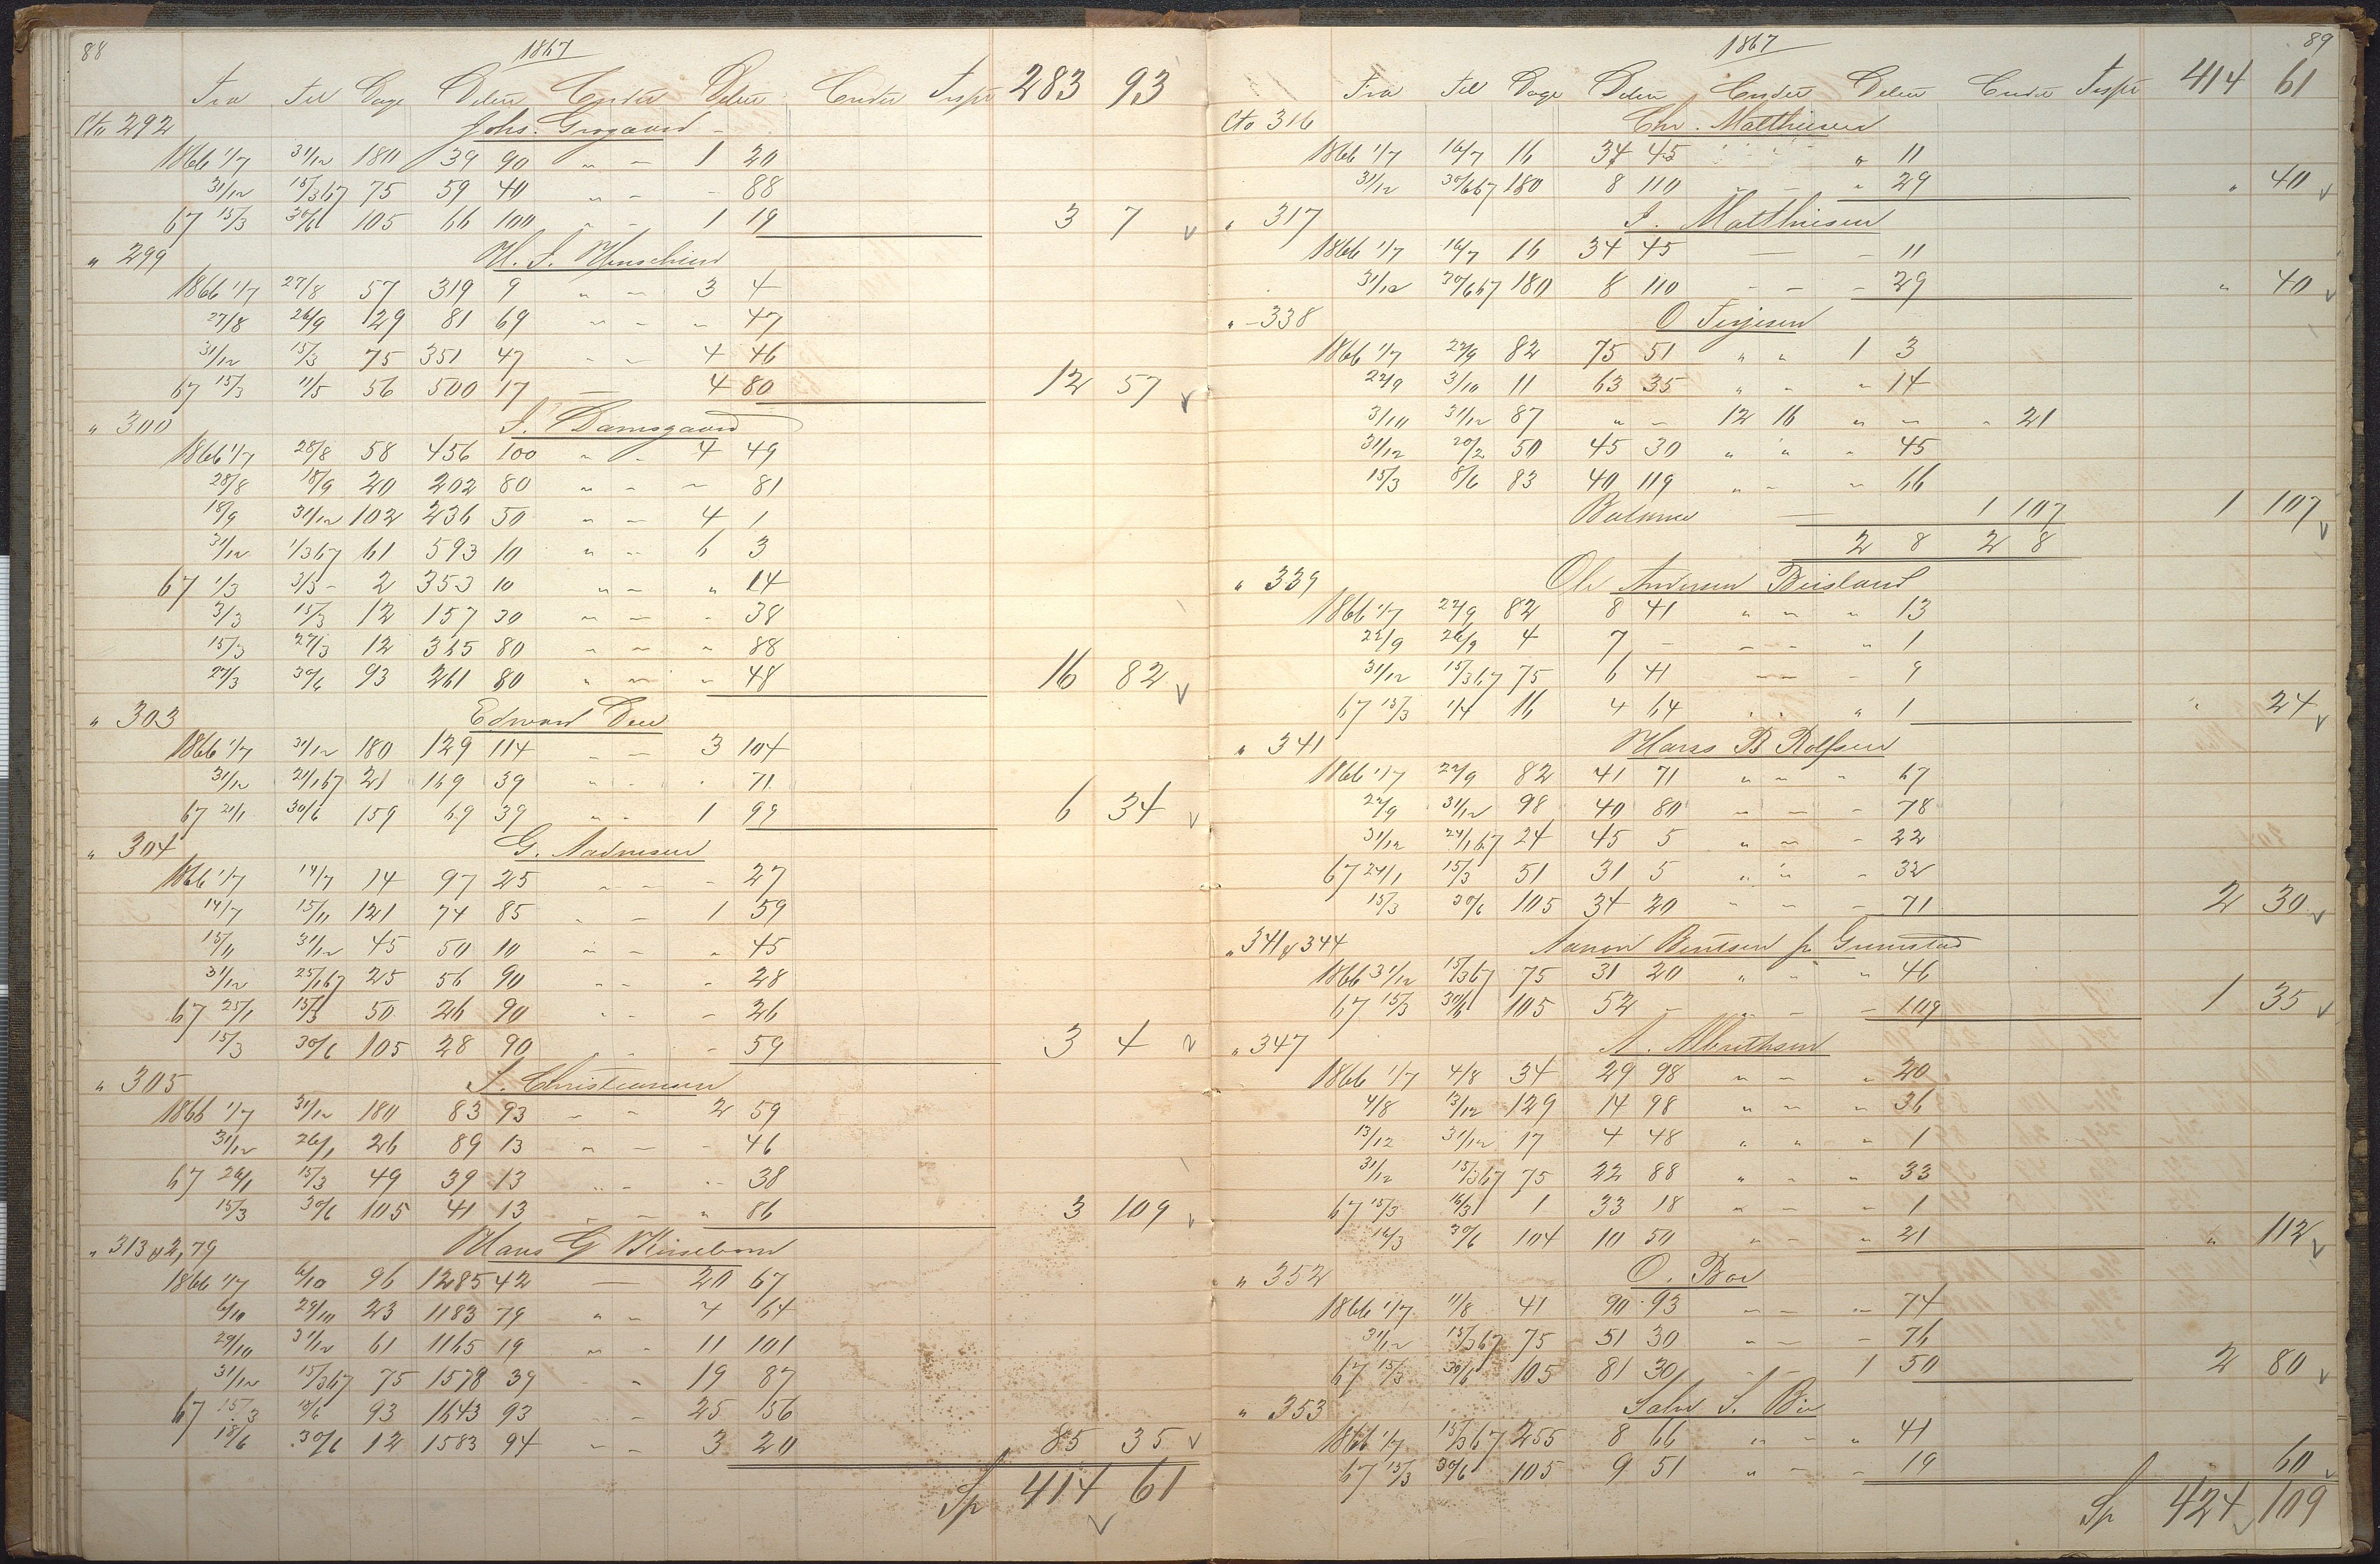 88
1867
Fra Til Dage Debet Credit Debet Credit Transpt 283 93
Cto 292 Johs. Grogaard
1866 1/7 31/12 180 39 90 " – 1 20
31/12 15/3 67 75 59 40 " – - 88
67 15/3 30/6 105 66 100 " - 1 19 3 7
" 299
1866 1/7 27/8 57 319 9 " – 3 4
27/8 26/9 29 81 69 " – " 47
31/12 15/3 75 351 47 " – 4 46
67 15/3 11/5 56 500 17 – 4 80 12 57
" 300 J. Damsgaard
1866 1/7 28/8 58 456 100 " - 4 49
28/8 18/9 20 202 80 " – – 81
18/9 31/12 102 236 50 " – 4 1
31/12 1/3 67 61 593 10 " – 6 3
67 1/3 3/3 - 2 353 10 " – " 14
3/3 15/3 12 157 30 " – - 38
15/3 27/3 12 365 80 – – " 88
27/3 30/6 93 261 80 " – " 48 16 82
" 303 Edward Dee
1866 1/7 31/12 180 129 114 – 3 104
31/12 21/1 67 21 169 39 " - - 71
67 21/1 30/6 159 69 39 " - 1 99 6 34
" 304 G. Aadnesen
1866 1/7 14/7 14 97 25 – – - 27
14/7 15/11 121 74 85 - – 1 59
15/11 31/12 45 50 10 " – " 45
31/12 25/1 67 25 56 90 - – - 28
67 25/1 15/3 50 26 90 - – – 26
15/3 30/6 105 28 90 - - - 59 3 4
" 305 J. Christiansen
1866 1/7 31/12 180 83 93 – - 2 59
31/12 26/1 26 89 13 " – - 46
67 26/1 15/3 49 39 13 " – - 38
15/3 30/6 105 41 13 - – " 86 3 109
" 313 & 2,79 Hans G
1866 1/7 6/10 96 1285 42 – 20 67
6/10 29/10 23 1183 79 " – 4 64
29/10 31/12 61 1165 19 " - 11 101
31/12 15/3 67 75 1578 39 - " 19 87
67 15/3 18/6 93 1643 93 - – 25 56
18/6 30/6 12 1583 94 – – 3 20 85 35
Sp 414 61
1867
89
Fra Til Dage Debet Credit Debet Credit Transpt 414 61
Cto 316 Chr. Matthiesen
1866 1/7 16/7 16 34 45 " 11
31/12 30/6 67 180 8 110 " – " 29 " 40
" 317 J. Matthiesen
1866 1/7 16/7 16 34 45 – – 11
31/12 30/6 67 180 8 110 - – – 29 " 40
" – 338 O Terjesen
1866 1/7 22/9 82 75 51 " " 1 3
22/9 3/10 11 63 35 " " " 14
3/10 31/12 87 " – 12 16 " – " 21
31/12 20/2 50 45 30 " " - 45
15/3 8/6 83 40 119 " – – 66
Balance – 1 107 1 107
2 8 2 8
" 339 Ole Andersen Birisland
1866 1/7 22/9 82 8 41 " – " 13
22/9 26/9 4 7 – – – " 1
31/12 15/3 67 75 6 41 – – - 9
67 15/3 1/4 16 4 64 - - " 1 " 24
" 341 Hans B Rolfsen
1866 1/7 22/9 82 41 71 " – " 67
22/9 31/12 98 40 80 – – – 78
31/12 24/1 67 24 45 5 " – - 22
67 24/1 15/3 51 31 5 " " - 32
15/3 30/6 105 34 20 " – – 71 2 30
" 341 & 344 Aanon Bentsen fr Grimstad
1866 31/12 15/3 67 75 31 20 " " " 46
67 15/3 30/6 105 52 – – - – 109 1 35
" 347 A. Albrethsen
1866 1/7 4/8 34 29 98 " – " 20
4/8 13/12 129 14 98 " – " 36
13/12 31/12 17 4 48 " " " 1
31/12 15/3 67 75 22 88 " - " 33
67 15/3 16/3 1 33 18 " – " 1
16/3 30/6 104 10 50 " – " 21 " 112
" 352 O. Boe
1866 1/7 11/8 41 90 93 – – – 74
31/12 15/3 67 75 51 30 " – – 76
67 15/3 30/6 105 81 30 - – 1 50 2 80
" 353
1866 1/7 15/3 67 255 8 66 " – " 41
67 15/3 30/6 105 9 51 " – – 19 60
Sp 424 109